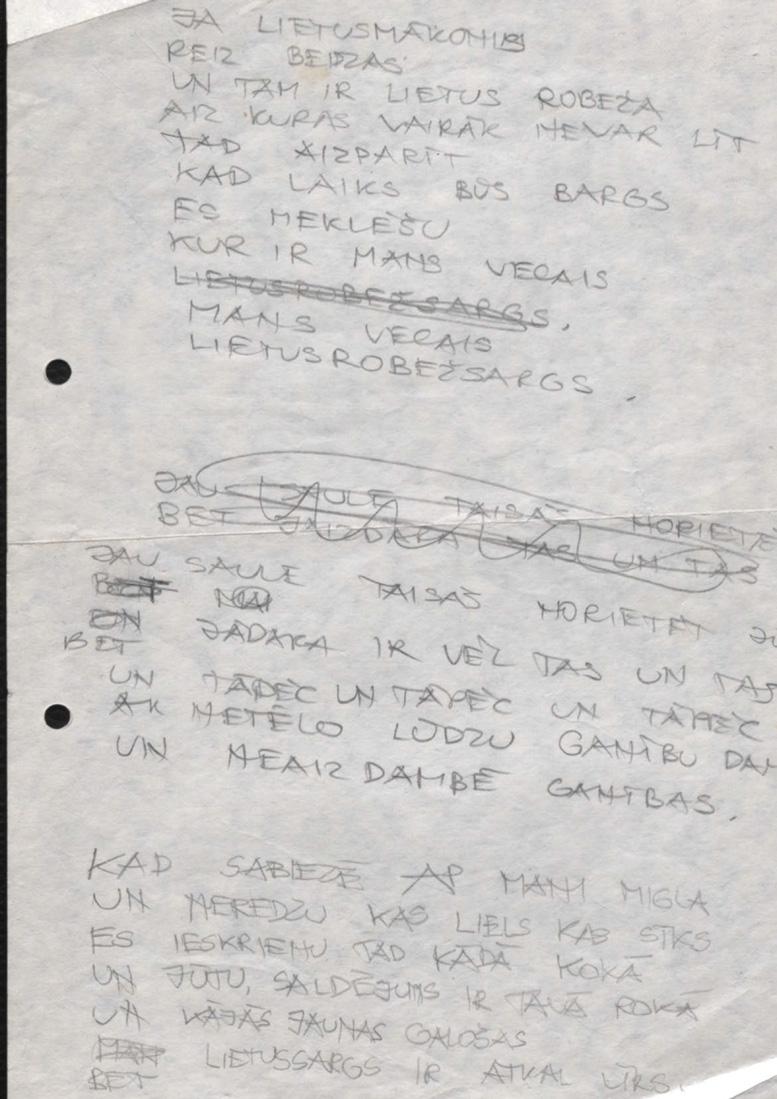 JA LIETUSMĀKONIS
REIZ BEIDZAS
UN TAM IR LIETUS ROBEŽA
AIZ KURAS VAIRĀK NEVAR LĪT
TAD AIZPARĪT
KAD LAIKS BŪS BARGS
ES MEKLĒŠU
KUR IR MANS VECAIS
LIETUSROBEŽSARGS.
MANS VECAIS
LIETUSROBEŽSARGS.
JAU SAULE TAISĀS NORIETĒT
BET JĀIZDARA TAS UN TAS
JAU SAULE TAISĀS NORIETĒT
BET JĀDARA IR VĒL TAS UN TAS
UN TĀPĒC UN TĀPĒC UN TĀPĒC
AK NETĒLO LŪDZU GANĪBU
UN NEAIZDAMBĒ GANĪBAS.
KAD SABIEZĒ AP MANI MIGLA
UN NEREDZU KAS LIELS KAS SĪKS
ES IESKRIENU TAD KĀDĀ KOKĀ
UN JŪTU, SALDĒJUMS IR TAVĀ ROKĀ
UN KĀJĀS JAUNAS GALOŠAS
BET LIETUSSARGS IR ATKAL ĪRS.